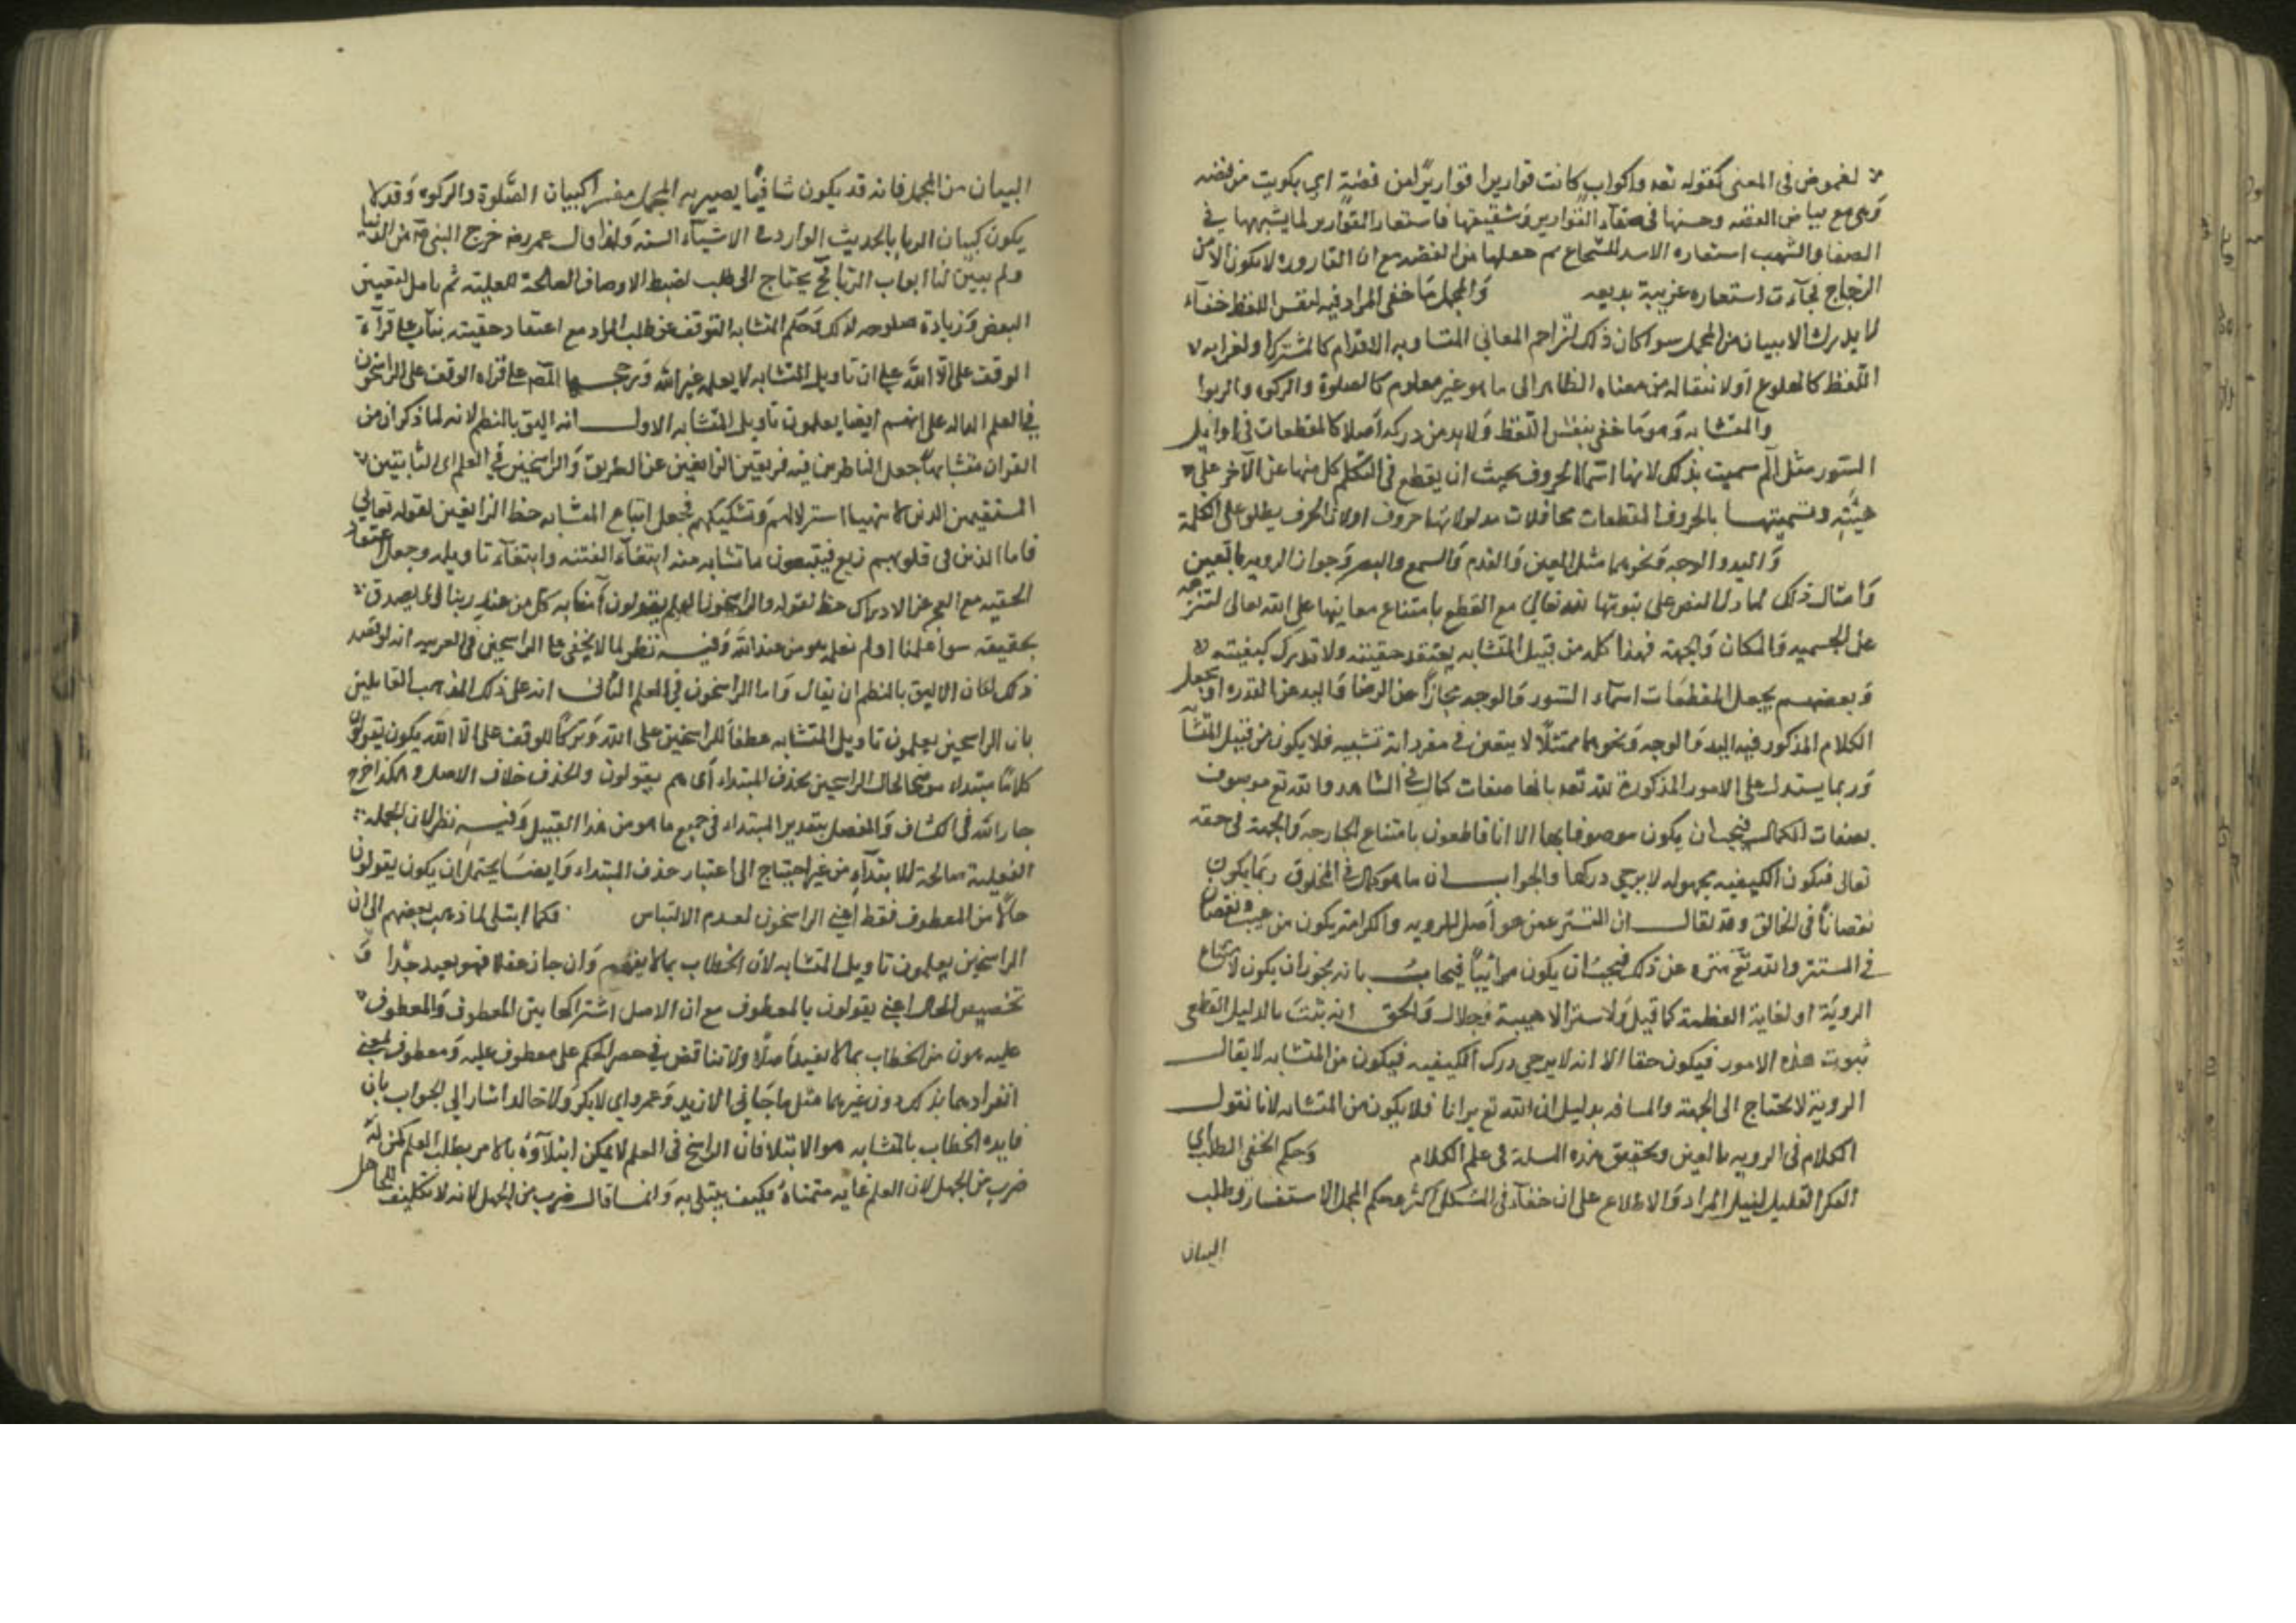 لغموض فى المعنى كقوله تعه واكواب كانت قواريرا قواريرًا من فضة اى بكويت من فضه
وَهى مع بياض الفضه وحسنها فى صفآء القوارير وشفيفها فاستعار القوارير لما يشبهها فى
الصفا والشهب استعاره الاسد للشجاع ثم جعلها من الفضه مع ان القاروره لا يكون الا من
الزجاج فجآءت استعاره غريبة بديعه وَالمجمل ما خفى المراد فيه لنفس اللفظ خفآء
لا يدرك الا ببيان من المجمل سوا كان ذلك لتزاحم المعانى المتساويه الاقدام كالمشترك او لغرابه
اللفظ كالهلوع اَو لانتقاله من معناه الظاهر الى ما هو غير معلوم كالصلوة والزكوه والربوا
والمتشابه وَهو مَا خفى بنفس اللفظ وَلا يد من دركه اَصلا كالمقطعات فى اوايل
السور مثل آلم سميت بذلك لانها اسمآ الحروف بحيث ان يقطع فى التكلم كل منها عن الآخر على
هيئته وتسميتهــا بالحروف المقطعات لان مدلولاتها حروف او لان الحرف يطلق على الكلمة
وَاليد والوجه وَنحوهما مثل العين وَالقدم وَالسمع والبصر وَجواز الرويه بالعين
وَامثال ذلك مما دل النص على ثبوتها لله تعالى مع القطع بامتناع معاينها على الله تعالى لتنزهه
عن الجسميه وَالمكان وَالجهة فهذا كله من قبيل المتشابه يعتقد حقيته ولا تدرك كيفيته
وَبعضهــم يجعل المقطعَات اسمآء السور وَالوجه مجازًا عن الرضا وَاليد عن القدره او يجعل
الكلام المذكور فيه اليد وَالوجه وَنحوهما ممثلا لا يتعين فى مفرداته تشبيه فلا يكون من قبيل المتشا
وَربما يستدل على الامور المذكورة لله تعه بانها صفات كمال فى الشاهد والله تع موصوف
بصفات الكمال فيجب ان يكون موصوفا بها الا انا قاطعون بامتناع الجارحه وَالجهة فى حقه
تعالى فيكون الكيفيه مجهوله لا يرجى دركها والجواب ان ما هو كمال فى المخلوق ربما يكون
نقصانًا فى الخالق وقد يقال ان التستر عمن هو اَهل للرويه والكرامة يكون من عيب ونقصان
فى المستتر والله تع منزه عن ذلك فيجب ان يكون مرائيا فيجاب بانه يجوز ان يكون لامتناع
الروية او لغاية العظمة كما قيل وَلا ستر الا هيبة وَجلال وَالحق انه ثبت بالدليل القطعى
ثبوت هذه الامور فيكون حقا الا انه لا يرجى درك الكيفيه فيكون من المتشابه لا يقال
الروية لا تحتاج الى الجهة والمسافه بدليل ان الله تع يرانا فلا يكون من المتشابه لانا نقول
الكلام فى الرويه بالعين وتحقيق هذه المسلة فى علم الكلام وَحكم الخفى الطلب اى
الفكر القليل لنيل المراد وَالاطلاع على ان خفآءه فى المشكل اكثر وحكم المجمل الاستفسار وطلب
البيان
البيان من المجمل فانه قد يكون شافيًا يصير به المجمل مفسرا كبيان الصّلوة والزكوه وَقد لا
يكون كبيان الربا بالحديث الوارد فى الاشياء السته وَلهذا قال عمر رضه خرج النبى صه من الدنيا
ولم يبيّن لنا ابواب الربا فح يحتاج الى طلب لضبط الاوصاف الصالحة للعلية ثم تامل لتعيين
البعض وَزيادة صلوحه لذلك وَحكم المتشابه التوقف عن طلب المراد مع اعتقاد حقيته بنآء على قرآءة
الوقف على الا اللّه على ان تاويل المتشابه لا يعلمه غير الله وَترجحــها المصـ على قراه الوقف على الراسخون
فى العلم الداله على انهم ايضا يعلمون تاويل المتشابه الاول انه اليق بالنظم لانه لما ذكر ان من
القران متشابهًا جعل الناظرين فيه فريقين الزايغين عن الطريق وَالراسخين فى العلم اى الثابتين
المستقيمين الذين لا يتهيا استزلالهم وَتشكيكهم فجعل اتباع المتشابه حظ الزايغين لقوله تعالى
فاما الذين فى قلوبهم زيغ فيتبعون ما تشابه منه ابتغآء الفتنه وابتغآء تاويله وجعل اعتقاد
الحقيه مع العجز عن الادراك حظ لقوله والراسخون فى العلم يقولون آمنا به كل من عند ربنا اى يصدق
بحقيته سوا علمنا او لم نعلم هو من عند الله وَفيــه نظر لما لا يخفى على الراسخين فى العربيه انه لو قصد
ذلك لكان الاليق بالنظم ان يقال وَاما الراسخون فى العلم الثانى انه على ذلك المذهب القايلين
بان الراسخين يعلمون تاويل المتشابه عطفاً للراسخين على الله وَتركًا للوقف على الا الله يكون يقولون
كلامًا مبتداء موضحا لحال الراسخين بحذف المبتداء اَى هم يقولون والحذف خلاف الاصل وهكذا خرج
جار الله فى الكشاف وَالمفصل بتقدير المبتداء فى جميع ما هو من هذا القبيل وَفيــه نظر لان الجمله
الفعلية صالحة للابتدآء من غير احتياج الى اعتبار حذف المبتداء وَايضــا يحتمل ان يكون يقولون
حالا من المعطوف فقط اعنى الراسخون لعدم الالتباس فكما ابتلى لما ذهب بعضهم الى ان
الراسخين يعلمون تاويل المتشابه لان الخطاب بما لا يفهم وَان جاز عقلا فهو بعيد جدّا وَ
تخصيص الحال اعنى يقولون بالمعطوف مع ان الاصل اشتراكها بين المعطوف وَالمعطوف
عليه اهون من الخطاب بما لا يفيد اَصلا ولا تناقض فى حصر الحكم على معطوف عليه وَمعطوف بمعنى
انفرادهما بذلك دون غيرهما مثل ما جَانى الا زيد وَعمرو اى لا بكر وَلا خالد اشار الى الجواب بان
فايده الخطاب بالمتشابه هو الابتلا فان الراسخ فى العلم لا يمكن ابتلآؤهُ بالامر بطلب العلم كمن له
ضرب من الجهل لان العلم غايه متمناهُ فكيف يبتلى به وَانمــا قال ضرب من الجهل لانه لا تكليف للجاهل